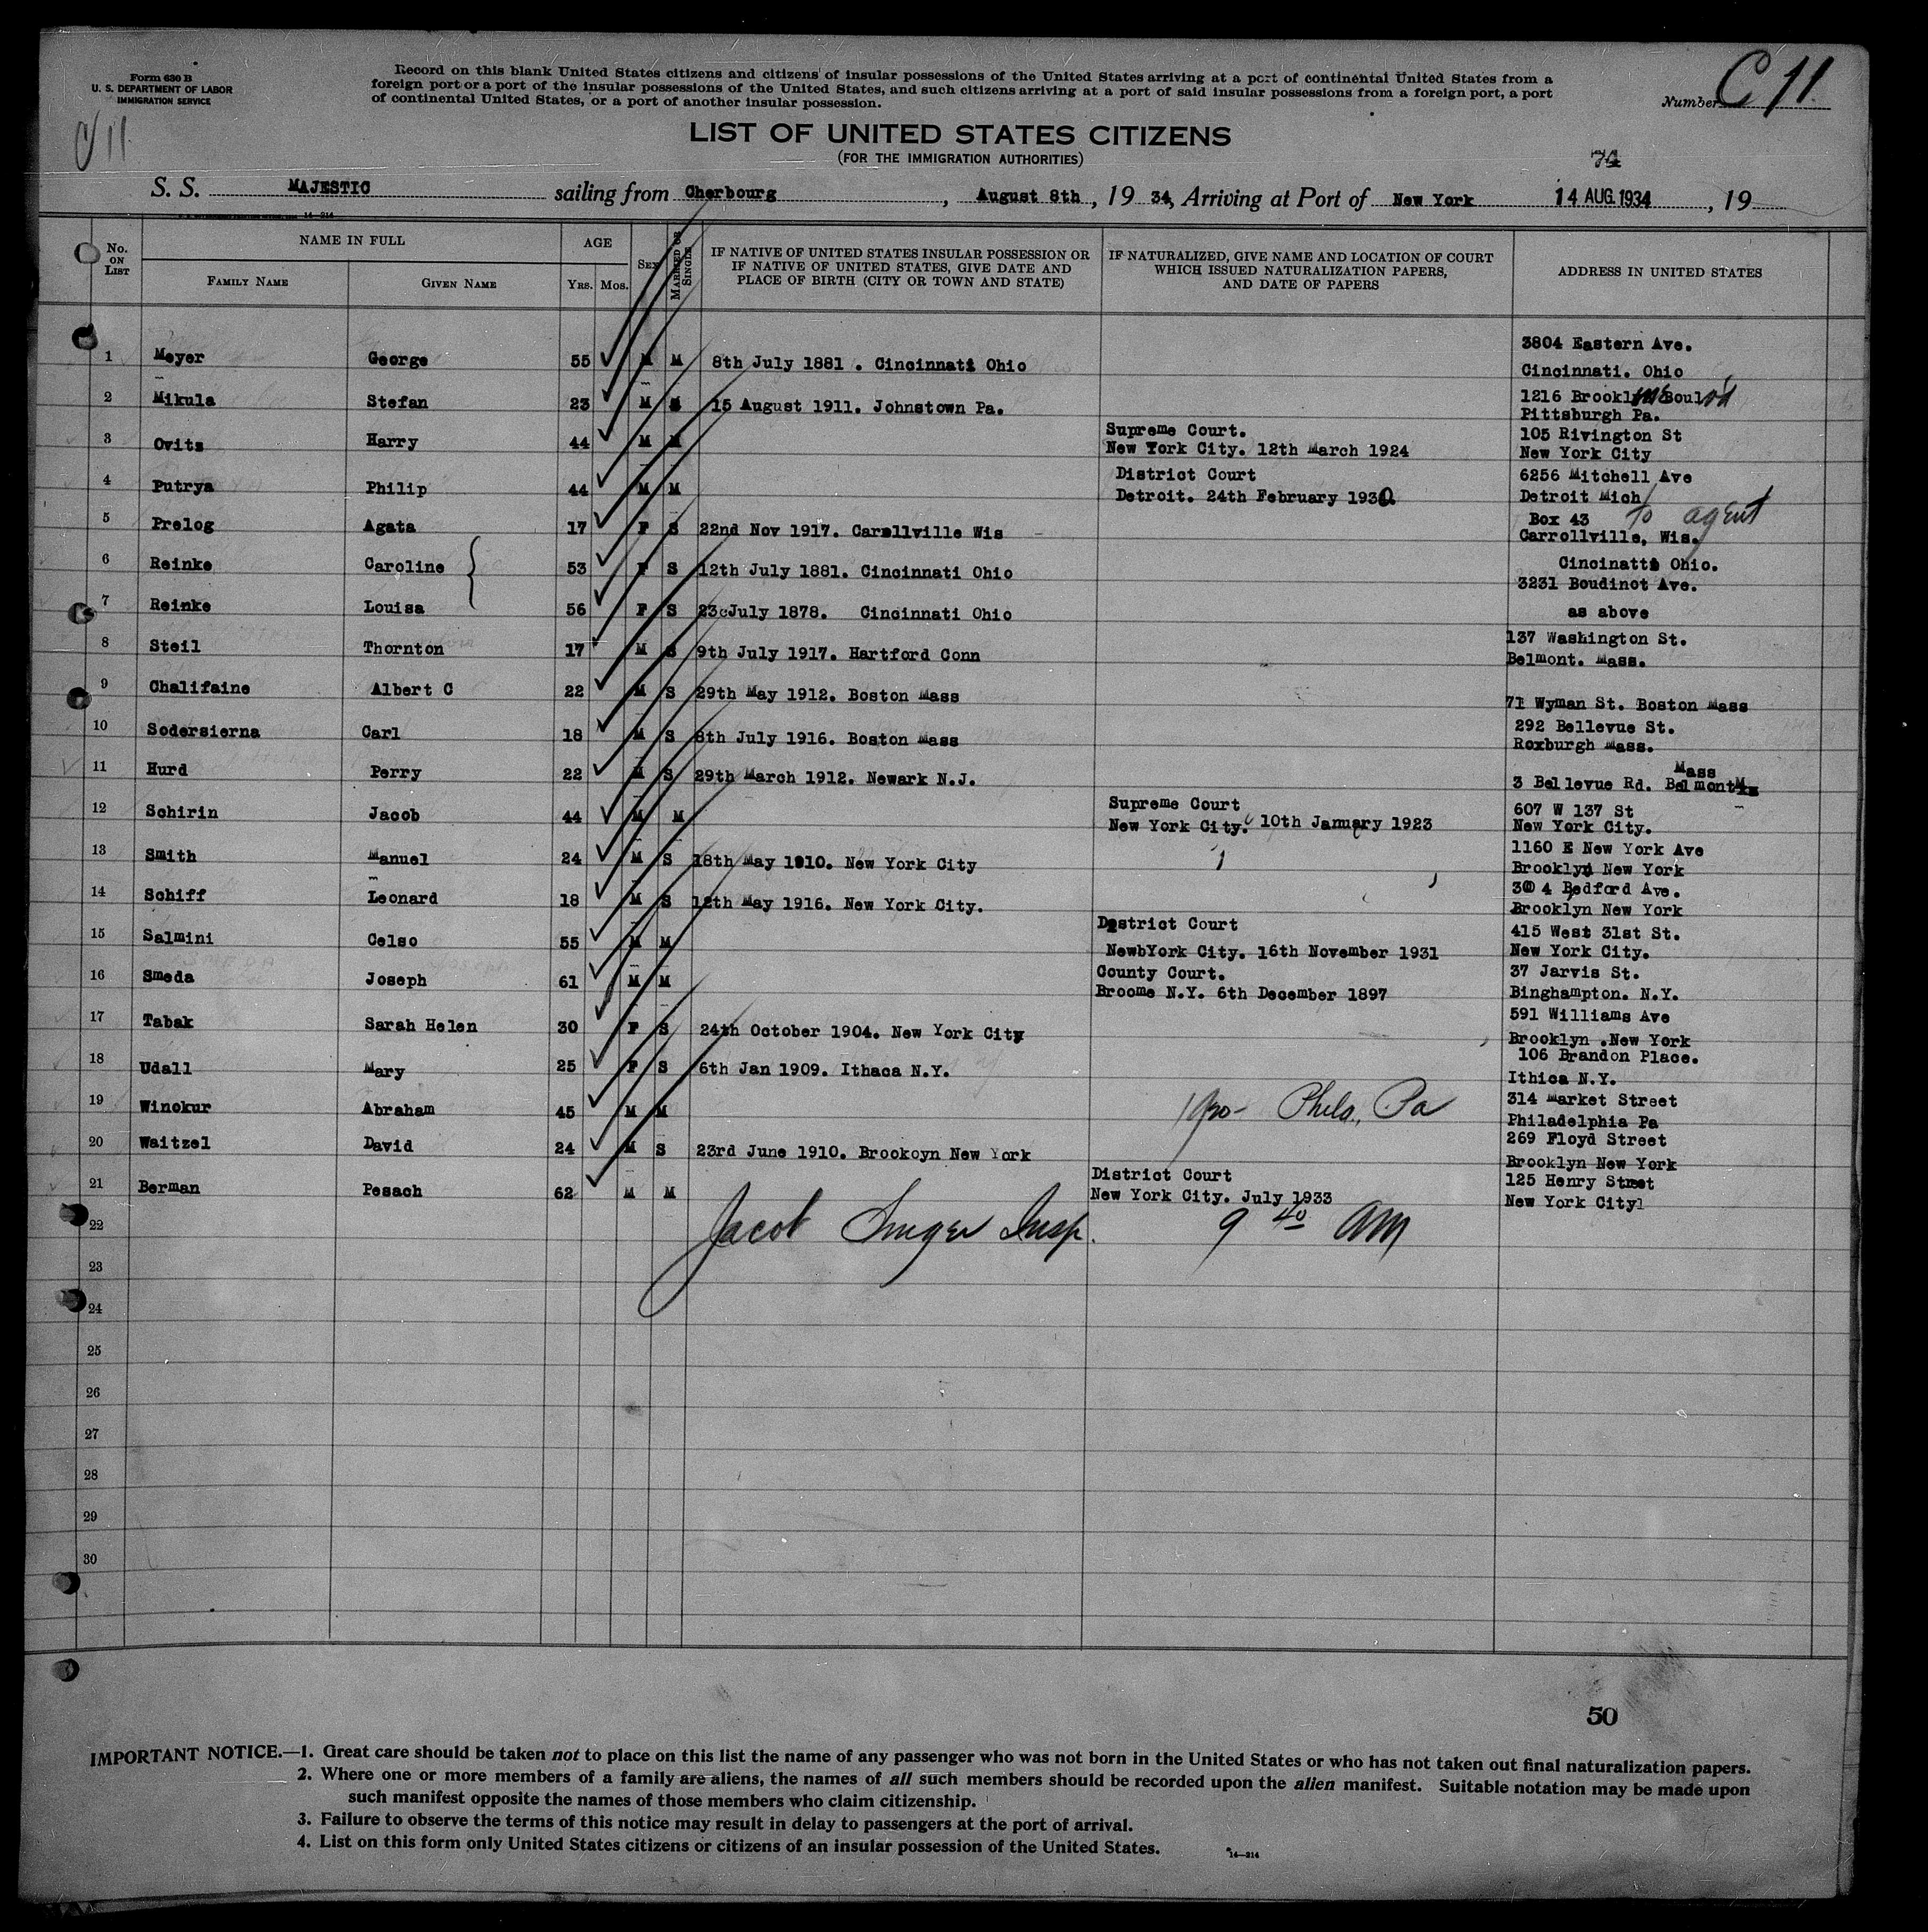 Form 630 B
U. S. DEPARTMENT OF LABOR
IMMIGRATION SERVICE
Record on this blank United States citizens and citizens of insular possessions of the United States arriving at a port of continental United States from a
foreign port or a port of the insular possessions of the United States, and such citizens arriving at a port of said insular possessions from a foreign port, a port
of continental United States, or a port of another insular possession.
Number C 11
C 11
LIST OF UNITED STATES CITIZENS
(FOR THE IMMIGRATION AUTHORITIES)
S. S. MAJESTIC sailing from Cherbourg, August 8th, 19 34, Arriving at Port of New York 14 AUG. 1934, 19
14-214
No. ON LIST
NAME IN FULL
FAMILY NAME GIVEN NAME
AGE
YRS. MOS.
SEX
MARRIED OR SINGLE
IF NATIVE OF UNITED STATES INSULAR POSSESSION OR
IF NATIVE OF UNITED STATES, GIVE DATE AND
PLACE OF BIRTH (CITY OR TOWN AND STATE)
IF NATURALIZED, GIVE NAME AND LOCATION OF COURT
WHICH ISSUED NATURALIZATION PAPERS,
AND DATE OF PAPERS
ADDRESS IN UNITED STATES
3804 Eastern Ave.
1 Meyer George 55 M M 8th July 1881 . Cincinnati Ohio
Cincinnati. Ohio
2 Mikula Stefan 23 M S 15 August 1911. Johnstown Pa. 1216 Brookline Boul
Pittsburgh Pa.
3 Ovits Harry 44 M M Supreme Court. 105 Rivington St
New York City. 12th March 1924 New York City
4 Putrya Philip 44 M M District Court 6256 Mitchell Ave
Detroit. 24th February 1930. Detroit Mich
5 Prelog Agata 17 F S 22nd Nov 1917. Carollville Wis Box 43 To agent
Carrollville, Wis.
6 Reinke Caroline 53 F S 12th July 1881. Cincinnati Ohio Cincinatti Ohio.
3231 Boudinot Ave.
7 Reinke Louisa 56 F S 23 July 1878. Cincinnati Ohio as above
8 Steil Thornton 17 M S 9th July 1917. Hartford Conn 137 Washington St.
Belmont. Mass.
9 Chalifaine Albert C 22 M S 29th May 1912. Boston Mass 71 Wyman St. Boston Mass
10 Sodersierna Carl 18 M S 8th July 1916. Boston Mass 292 Bellevue St.
Roxburgh Mass.
11 Hurd Perry 22 M S 29th March 1912. Newark N.J. Mass
3 Bellevue Rd. Belmont
12 Schirin Jacob 44 M M Supreme Court 607 W 137 St
New York City. 10th January 1923 New York City.
13 Smith Manuel 24 M S 18th May 1910. New York City 1160 E New York Ave
Brooklyn New York
14 Schiff Leonard 18 M S 12th May 1916. New York City. 30 4 Bedford Ave.
Brooklyn New York
15 Salmini Celso 55 M M District Court 415 West 31st St.
NewbYork City. 16th November 1931 New York City.
16 Smeda Joseph 61 M M County Court. 37 Jarvis St.
Broome N.Y. 6th December 1897 Binghampton. N.Y.
17 Tabak Sarah Helen 30 F S 24th October 1904. New York City 591 Williams Ave
Brooklyn .New York
18 Udall Mary 25 F S 6th Jan 1909. Ithaca N.Y. 106 Brandon Place.
Ithica N.Y.
19 Winokur Abraham 45 M M Phila, Pa 314 Market Street
Philadelphia Pa
20 Waitzel David 24 M S 23rd June 1910. Brookoyn New York 269 Floyd Street
Brooklyn New York
21 Berman Pesach 62 M M District Court 125 Henry Street
New York City. July 1933 New York City
22 Jacob Singer Insp. 9 40 AM
23
24
25
26
27
28
29
30
50
IMPORTANT NOTICE.—1. Great care should be taken not to place on this list the name of any passenger who was not born in the United States or who has not taken out final naturalization papers.
2. Where one or more members of a family are aliens, the names of all such members should be recorded upon the alien manifest. Suitable notation may be made upon
such manifest opposite the names of those members who claim citizenship.
3. Failure to observe the terms of this notice may result in delay to passengers at the port of arrival.
4. List on this form only United States citizens or citizens of an insular possession of the United States.
14—214